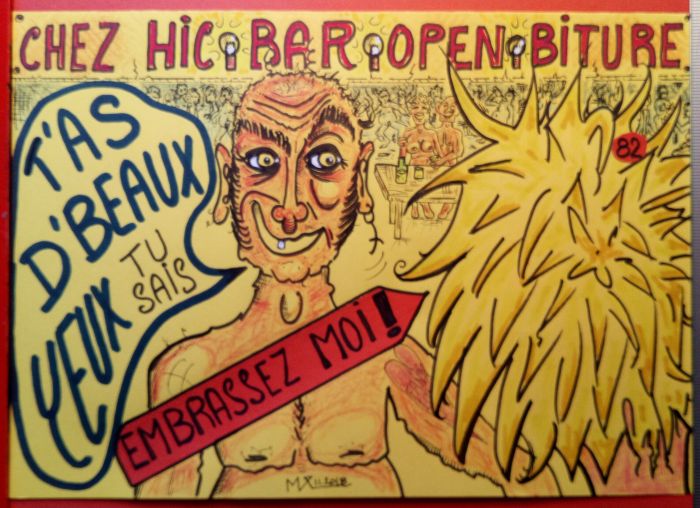 CHEZ HIC BAR OPEN BITURE
T'AS
D'BEAUX
YEUX
TU
SAIS
EMBRASSEZ MOI!
82